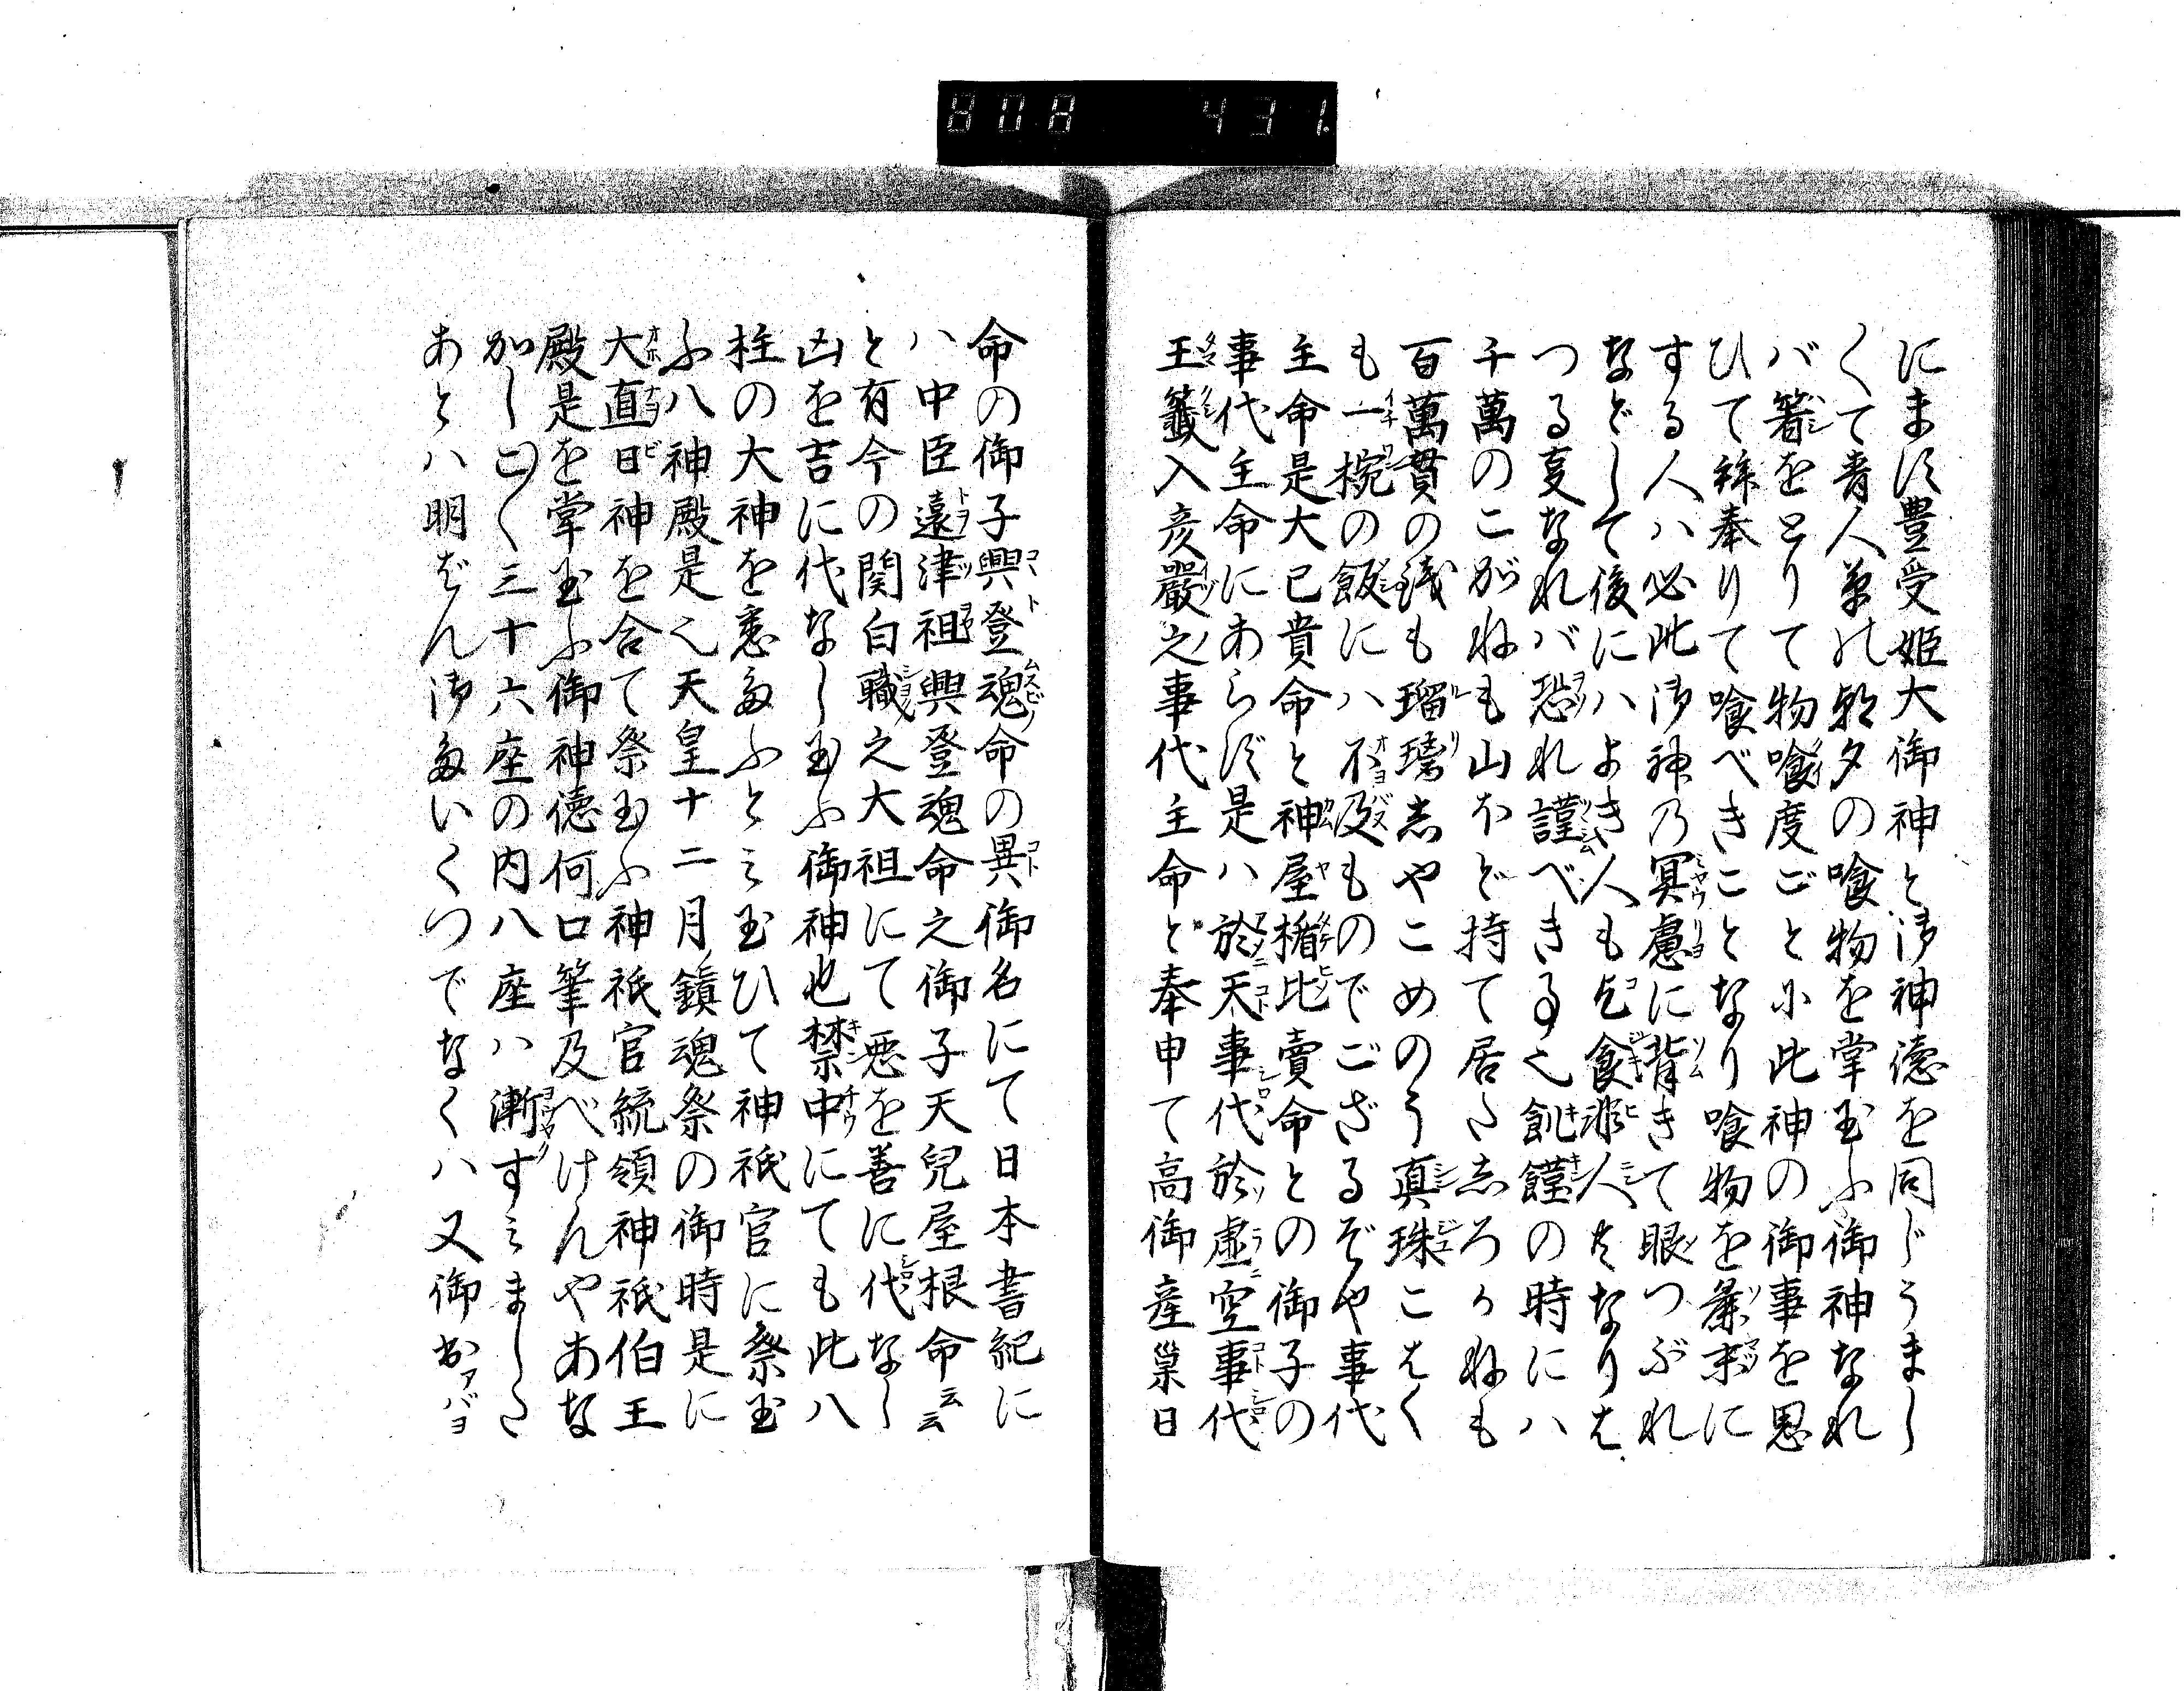 808 431
にます豊受姫大御神と御神徳を同じうまし
くて青人草の朝夕の喰物を掌玉ふ御神なれ
バ箸をとりて物喰度ごと小此神の御事を思
ひて稱奉りて喰べきことなり喰物を麁末に
する人ハ必此御神乃冥慮に背きて眼つぶれ
などして後にハよき人も乞食非人共なりは
つる事なれバ恐れ謹べきる也飢饉の時にハ
千萬のこがねも山ほど持て居たしろかねも
百萬貫の銭も瑠璃しやこめのう真珠こはく
も一椀の飯にハ不及ものでござるぞや事代
主命是大己貴命と神屋楯比賣命との御子の
事代主命にあらず是ハ於天事代於虚空事代
玉籤入彦嚴之事代主命と奉申て高御産巣日
命の御子興登魂命の異御名にて日本書紀に
ハ中臣遠津祖興登魂命之御子天兒屋根命云云
と有今の関白職之大祖にて悪を善に代なし
凶を吉に代なし玉ふ御神也禁中にても此八
柱の大神を恵あふとみ玉ひて神祇官に祭玉
ふ八神殿是也天皇十二月鎮魂祭の御時是に
大直日神を合て祭玉ふ神祇官統領神祇伯王
殿是を掌玉ふ御神徳何口筆及べけんやあな
かしこく三十六座の内八座ハ漸すみました
あとハ明ばん御あいくつでなくハ又御出アバヨ